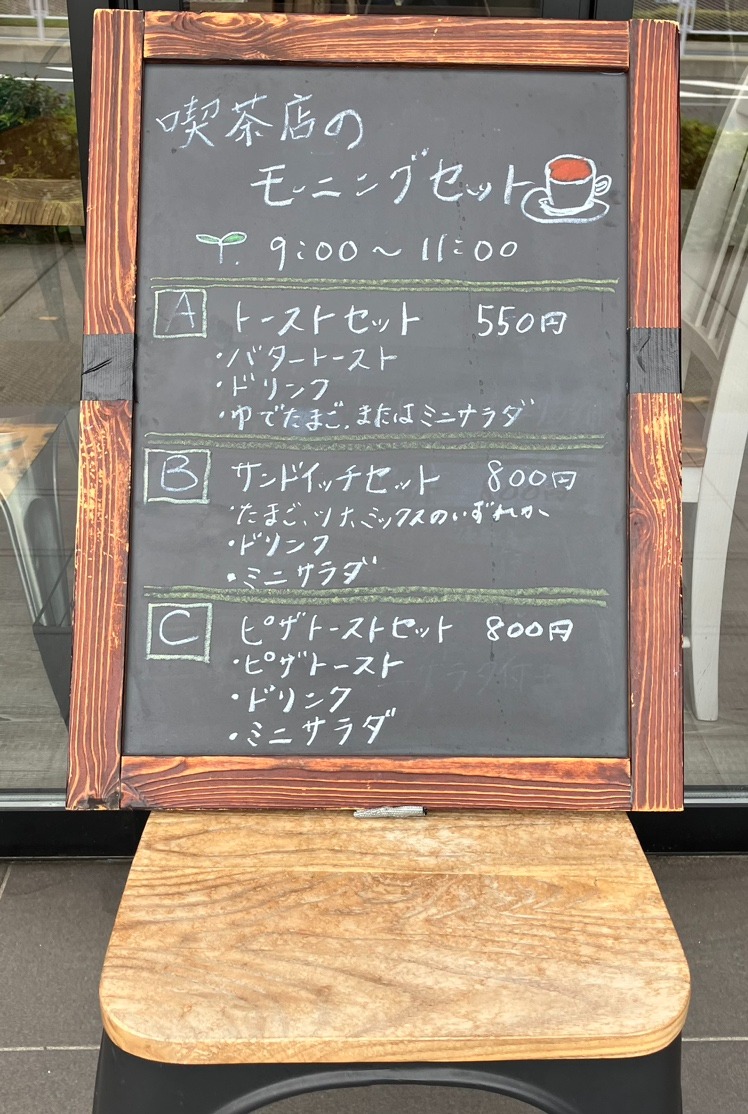 喫茶店の
モーニングセット
9:00〜11:00
A トーストセット 550円
・バタートースト
・ドリンク
・ゆでたまご、またはミニサラダ
B サンドイッチセット 800円
・たまご、ツナ、ミックスのいずれか
・ドリンク
・ミニサラダ
C ピザトーストセット 800円
・ピザトースト
・ドリンク
・ミニサラダ